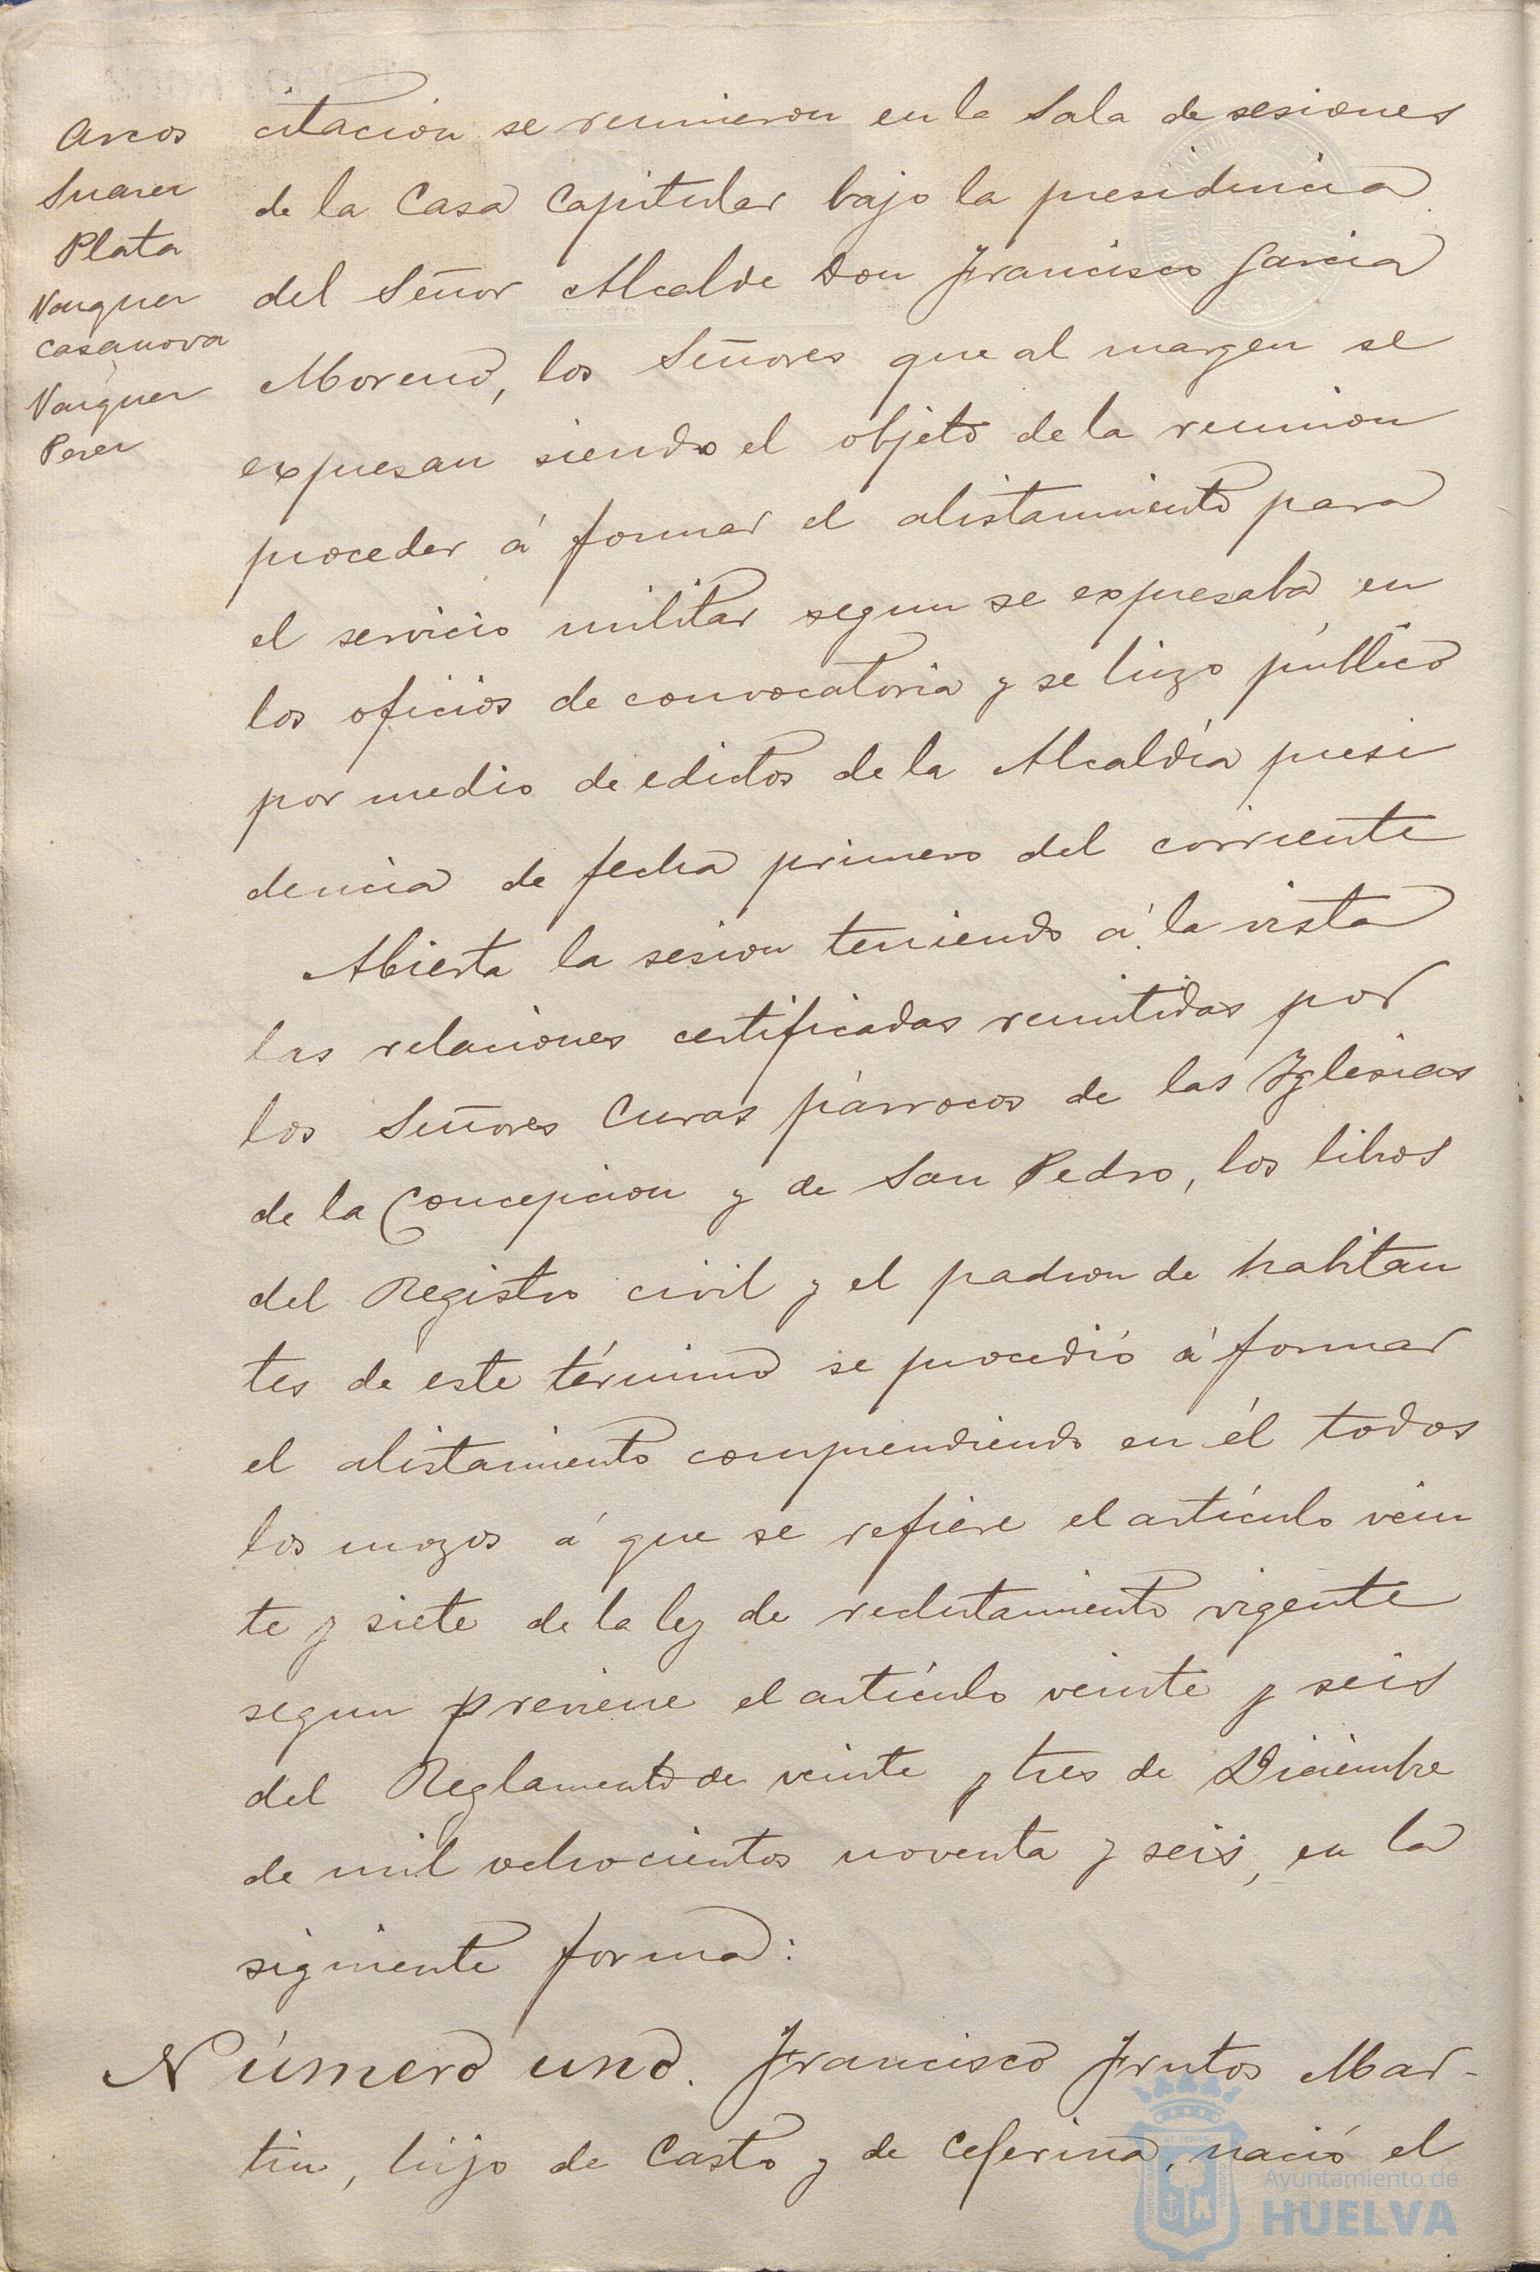 Arcos
Suarez
Plata
Vazquez
Casanova
Vazquez
Perez
citacion se reunieron en la Sala de sesiones
de la Casa Capitular bajo la presidencia
del Señor Alcalde Don Francisco Garcia
Moreno, los Señores que al margen se
expresan siendo el objeto de la reunion
proceder á formar el alistamiento para
el servicio militar segun se expresaba en
los oficios de convocatoria y se hizo público
por medio de edictos de la Alcaldía presi
dencia de fecha primero del corriente
Abierta la sesion teniendo á la vista
las relaciones certificadas remitidas por
los Señores Curas párrocos de las Iglesias
de la Concepcion y de San Pedro, los libros
del Registro civil y el padron de habitan
tes de este término se procedió á formar
el alistamiento comprendiendo en él todos
los mozos á que se refiere el artículo vein
te y siete de la ley de reclutamiento vigente
segun previene el artículo veinte y seis
del Reglamento de veinte y tres de Diciembre
de mil ochocientos noventa y seis, en la
siguiente forma:
Número uno. Francisco Frutos Mar-
tin, hijo de Casto y de Ceferina, nació el
Ayuntamiento de
HUELVA